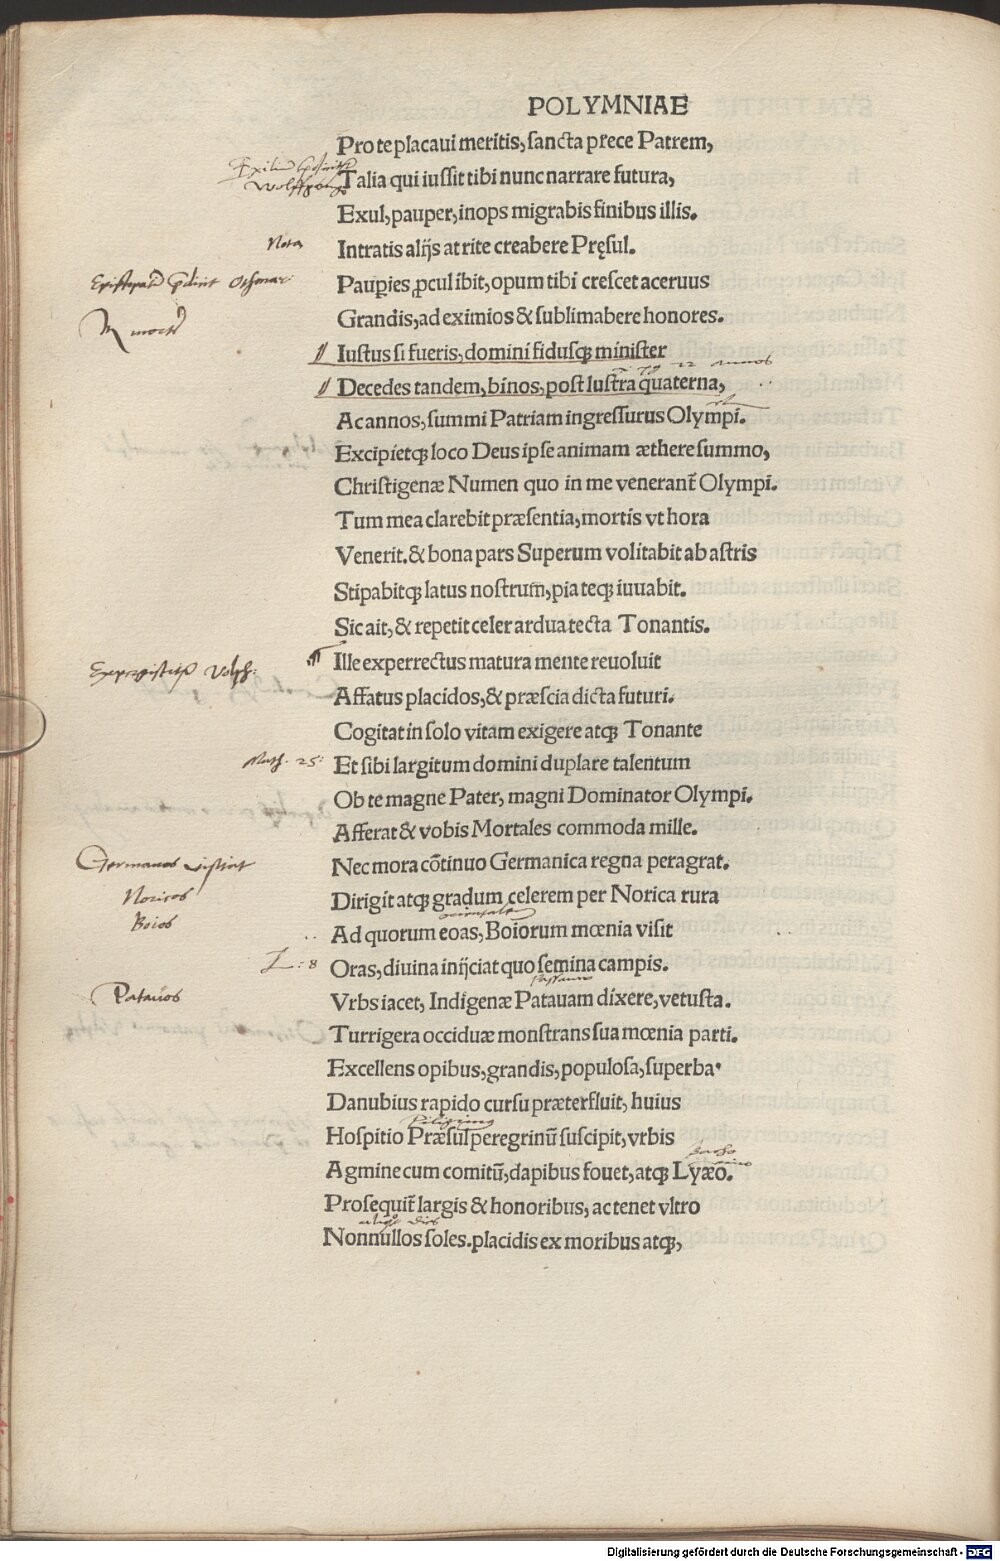 POLYMNIAE
Pro te placaui meritis, sancta prece Patrem,
Talia qui iussit tibi nunc narrare futura,
Exul, pauper, inops migrabis finibus illis.
Nota
Intratis alijs at rite creabere Pręsul.
Paup̱ies ꝓcul ibit, opum tibi crescet aceruus
Grandis, ad eximios & sublimabere honores.
Iustus si fueris, domini fidusqꝫ minister
22 annos
Decedes tandem, binos, post lustra quaterna,
Ac annos, summi Patriam ingressurus Olympi.
Excipietqꝫ loco Deus ipse animam æthere summo,
Christigenæ Numen quo in me venerant̃ Olympi.
Tum mea clarebit præsentia, mortis vt hora
Venerit. & bona pars Superum volitabit ab astris
Stipabitqꝫ latus nostrum̃, pia teqꝫ iuuabit.
Sic ait, & repetit celer ardua tecta Tonantis.
Ille experrectus matura mente reuoluit
Affatus placidos, & præscia dicta futuri.
Cogitat in solo vitam exigere atqꝫ Tonante
Math. 25:
Et sibi largitum domini duplare talentum
Ob te magne Pater, magni Dominator Olympi.
Afferat & vobis Mortales commoda mille.
Germanos visitat
Nec mora cõtinuo Germanica regna peragrat.
Noricos
Dirigit atqꝫ gradum celerem per Norica rura
Boios
Ad quorum eoas, Boiorum mœnia visit
Oras, diuina inijciat quo semina campis.
Patauos
Vrbs iacet, Indigenæ Patauam dixere, vetusta.
Turrigera occiduæ monstrans sua mœnia parti.
Excellens opibus, grandis, populosa, superba.
Danubius rapido cursu præterfluit, huius
Hospitio Præsul peregrinũ suscipit, vrbis
Agmine cum comitũ, dapibus fouet, atqꝫ Lyæo.
Prosequit̃ largis & honoribus, ac tenet vltro
Nonnullos soles. placidis ex moribus atqꝫ,
Digitalisierung gefördert durch die Deutsche Forschungsgemeinschaft - DFG